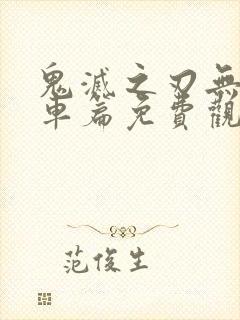 鬼滅之刃無
車篇免費觀
范俊生